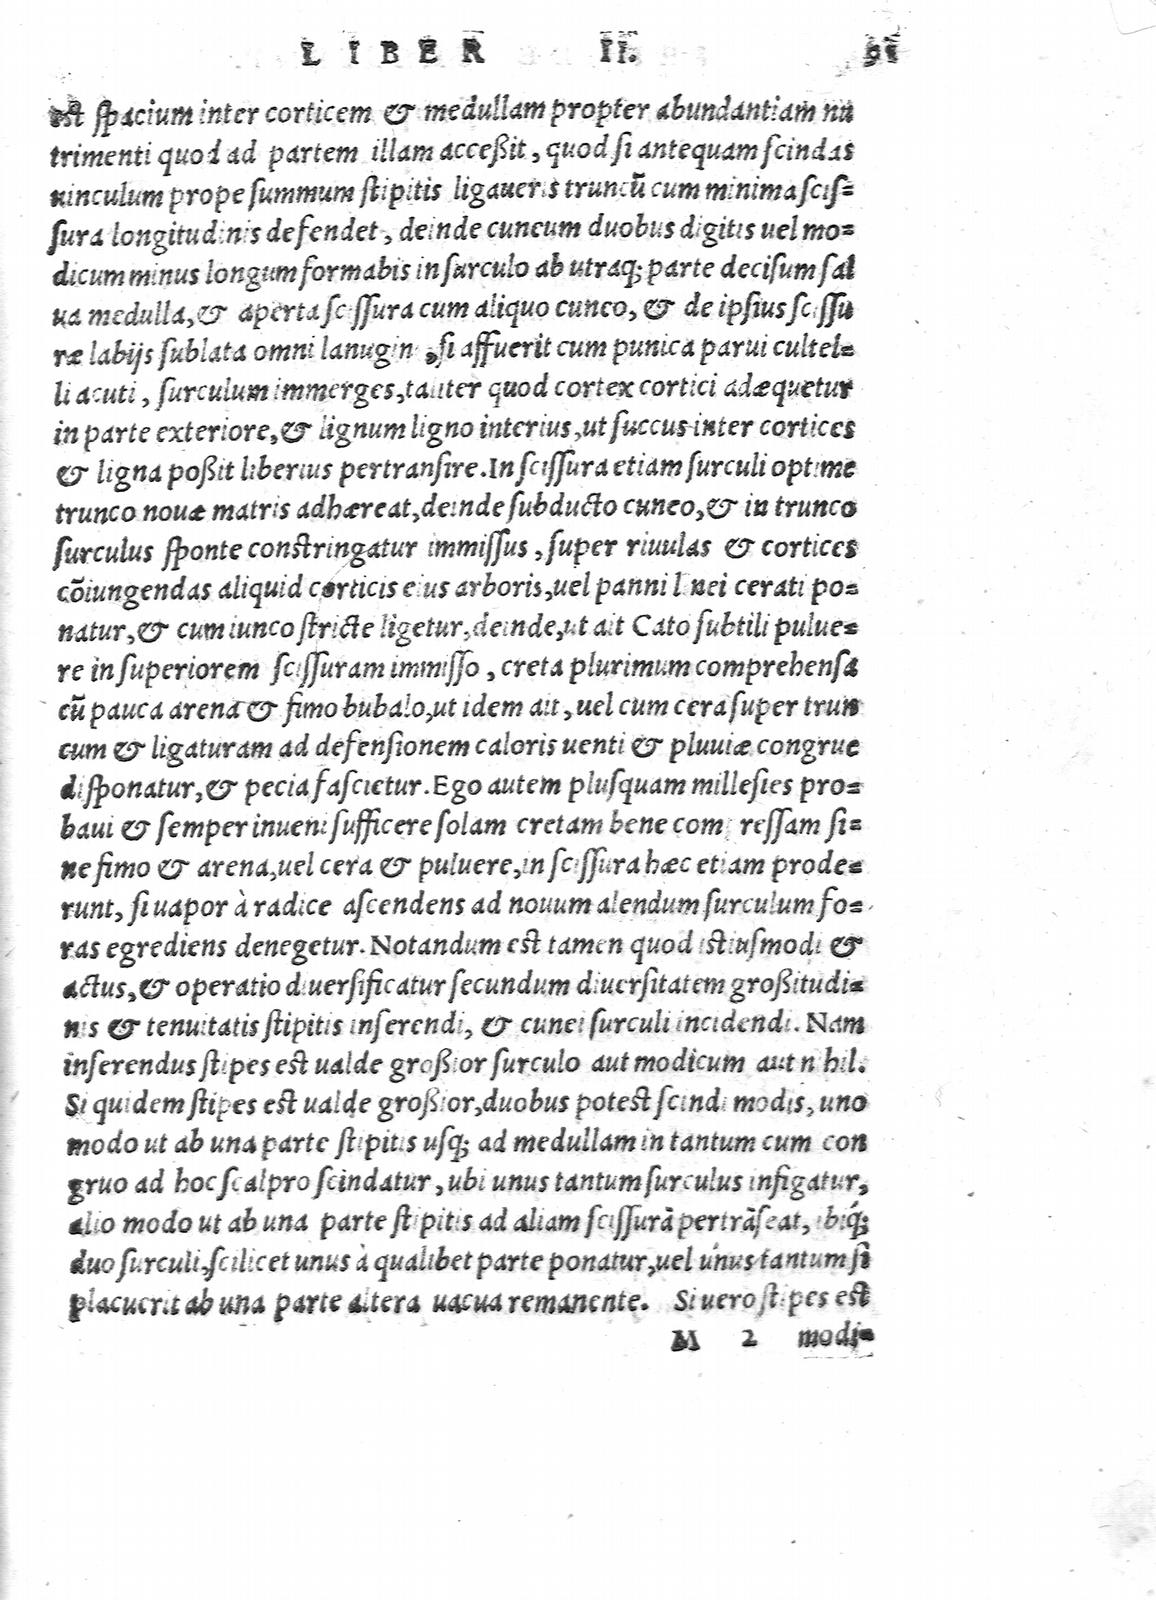 LIBER II. 91
est spacium inter corticem & medullam propter abundantiam nu
trimenti quod ad partem illam acceßit, quod si antequam scindas
uinculum prope summum stipitis ligaueris truncū cum minima scis=
sura longitudinis defendet, deinde cuneum duobus digitis uel mo=
dicum minus longum formabis in surculo ab utraq; parte decisum sal
ua medulla, & aperta scissura cum aliquo cuneo, & de ipsius scissu
ræ labijs sublata omni lanugin , si affuerit cum punica parui cultel=
li acuti, surculum immerges, taliter quod cortex cortici adæquetur
in parte exteriore, & lignum ligno interius, ut succus inter cortices
& ligna poßit liberius pertransire. In scissura etiam surculi optime
trunco nouæ matris adhæreat, deinde subducto cuneo, & in trunco
surculus sponte constringatur immissus, super riuulas & cortices
cōiungendas aliquid corticis eius arboris, uel panni l nei cerati po=
natur, & cum iunco stricte ligetur, deinde, ut ait Cato subtili pulue=
re in superiorem scissuram immisso, creta plurimum comprehensa
cū pauca arena & fimo bubalo, ut idem ait, uel cum cera super trun
cum & ligaturam ad defensionem caloris uenti & pluuiæ congrue
disponatur, & pecia fascietur. Ego autem plusquam millesies pro=
baui & semper inueni sufficere solam cretam bene com ressam si=
ne fimo & arena, uel cera & puluere, in scissura hæc etiam prode=
runt, si uapor à radice ascendens ad nouum alendum surculum fo=
ras egrediens denegetur. Notandum est tamen quod istiusmodi &
actus, & operatio diuersificatur secundum diuersitatem großitudi=
nis & tenuitatis stipitis inserendi, & cunei surculi incidendi. Nam
inserendus stipes est ualde großior surculo aut modicum aut n hil.
Si quidem stipes est ualde großior, duobus potest scindi modis, uno
modo ut ab una parte stipitis usq; ad medullam in tantum cum con
gruo ad hoc scalpro scindatur, ubi unus tantum surculus infigatur,
alio modo ut ab una parte stipitis ad aliam scissurā pertrāseat, ibiq́;
duo surculi, scilicet unus à qualibet parte ponatur, uel unus tantum si
placuerit ab una parte altera uacua remanente. Si uero stipes est
M 2 modi=